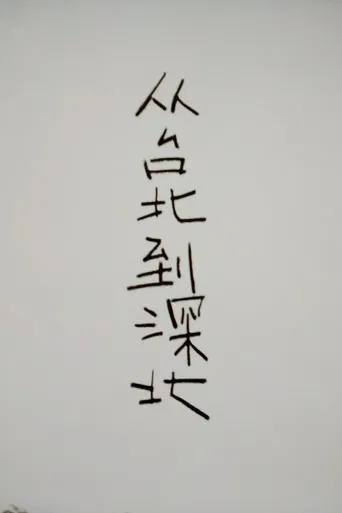 从台北到深北